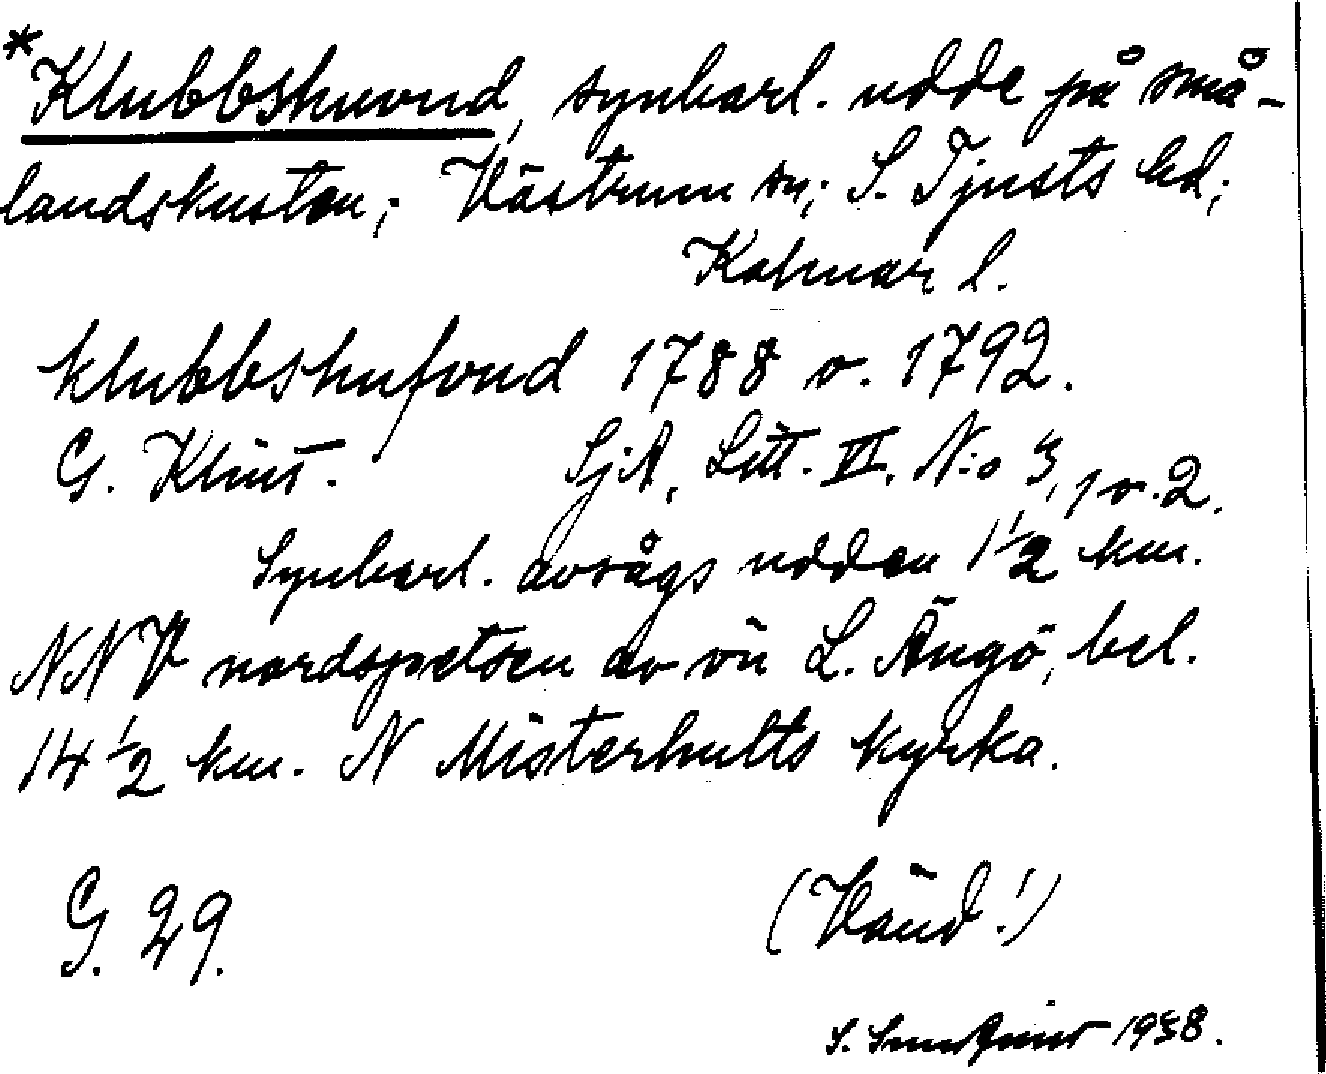 *Klubbshuvud, synbarl. udde på små-
landskusten; Västrum sn; S. Tjusts hd;
Kalmar l.
klubbshufvud 1788 o. 1792.
G. Klint. SjA, Litt. VI, N:o 3, 1 o. 2.
Synbarl. avsågs udden 1 1/2 km.
NNV nordspetsen av ön L. Ängö, bel.
14 1/2 km. N Misterhults kyrka.
G. 29. (Vänd!)
S. 1938.